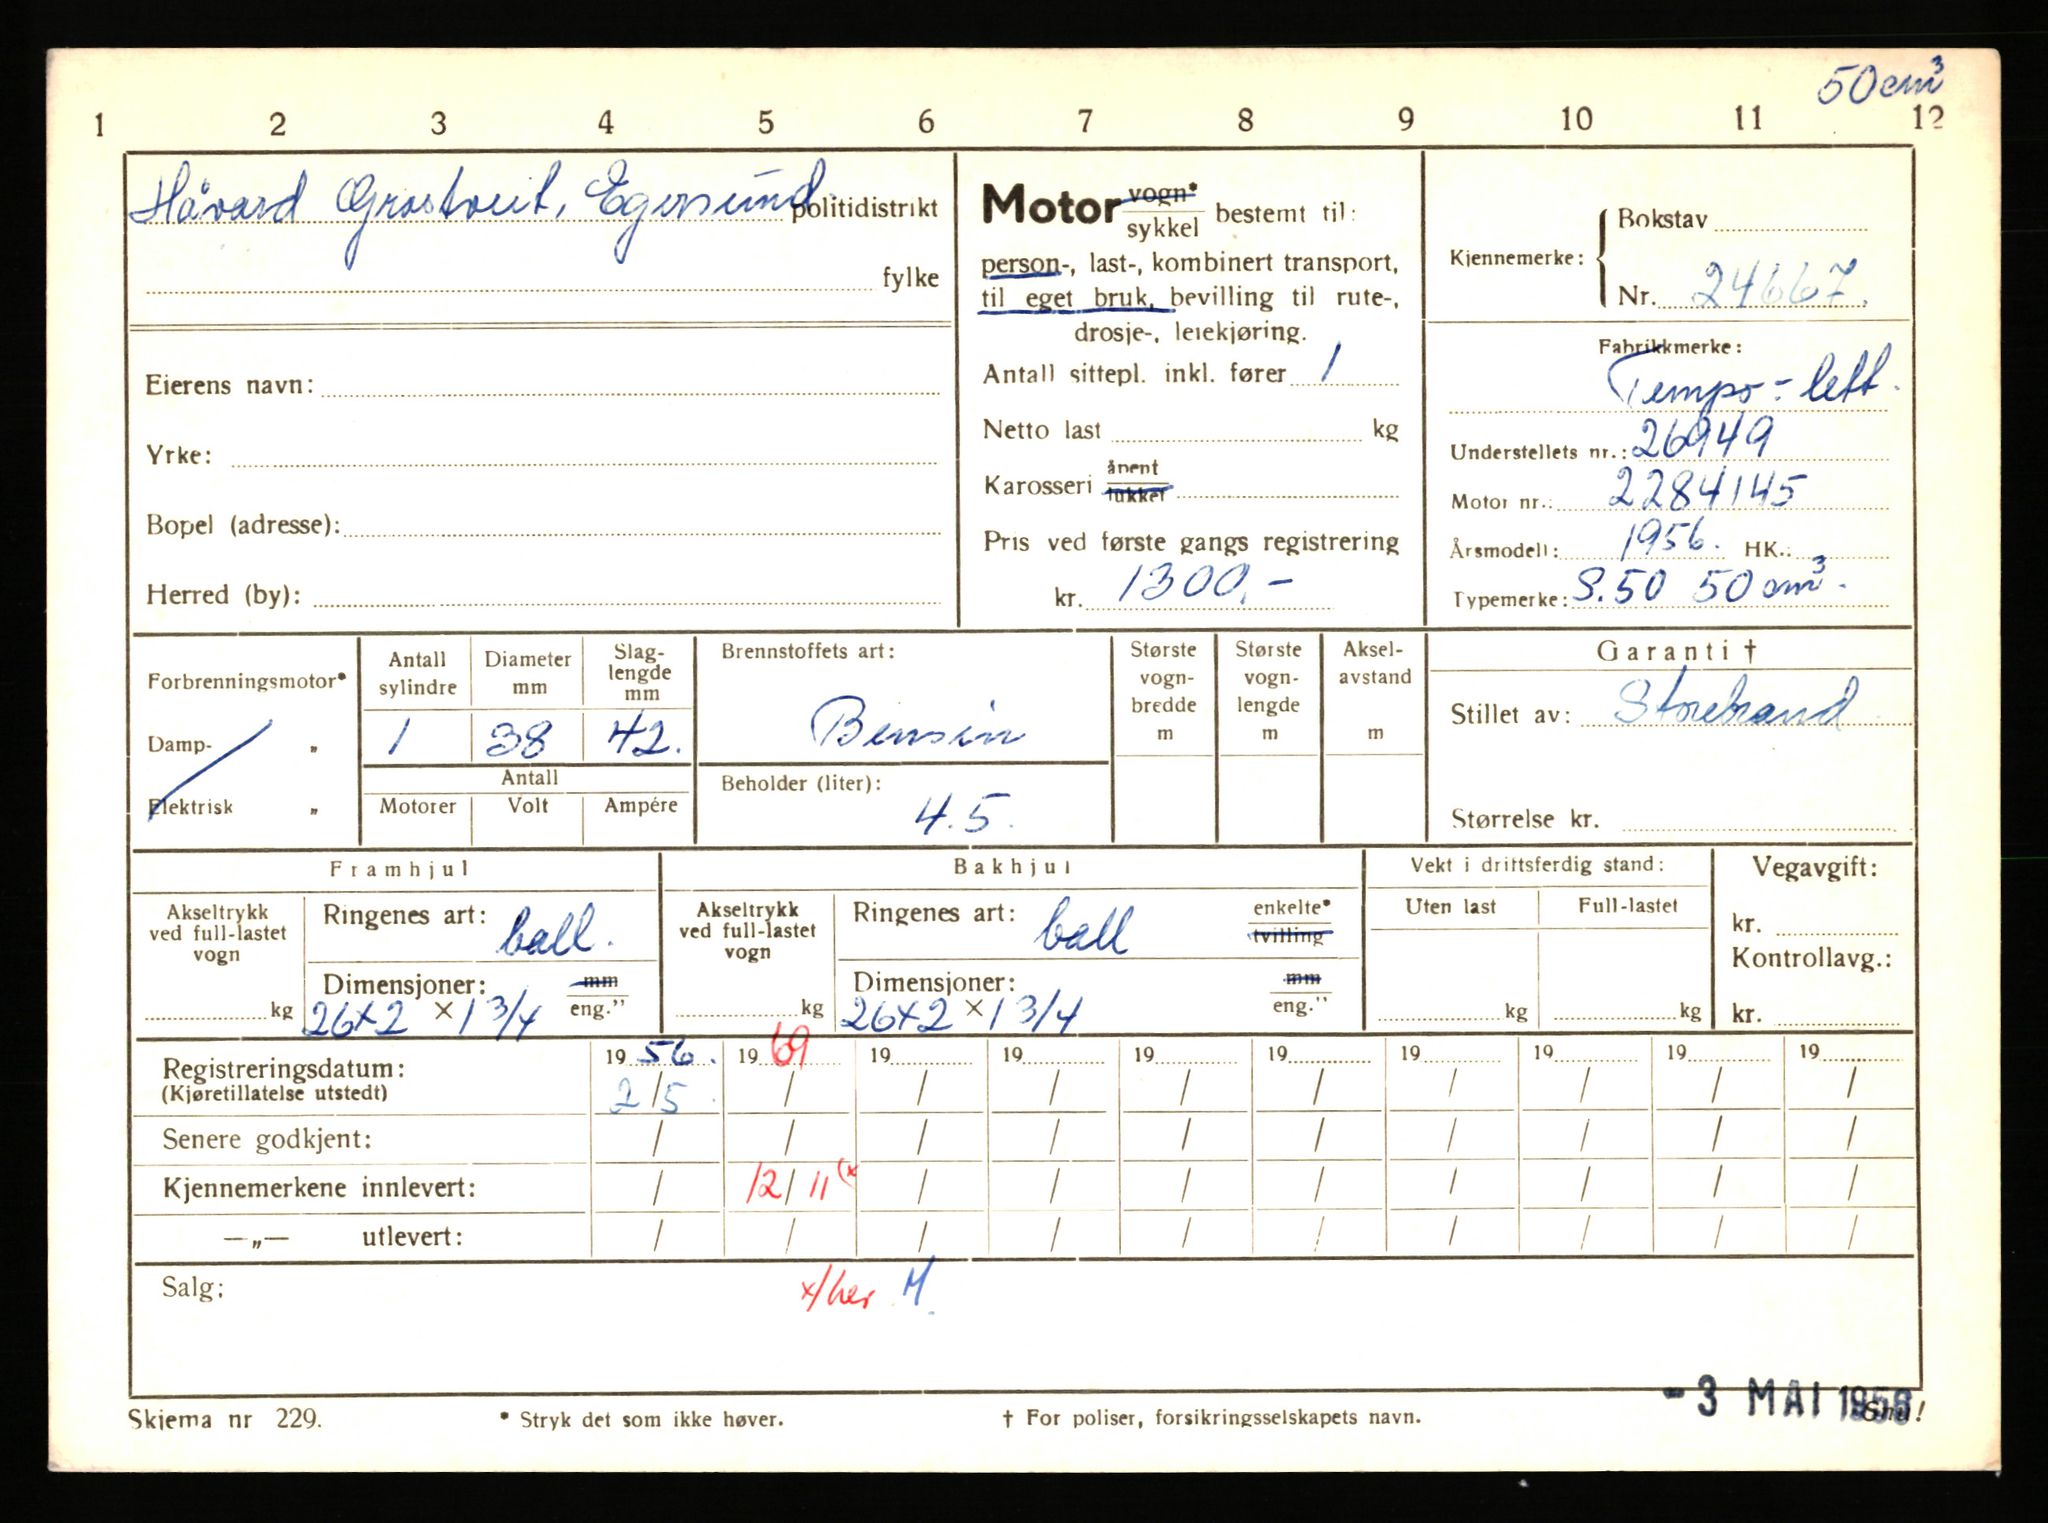 50 cm³
1 2 3 4 5 6 7 8 9 10 11 12
Håvard Grostveit, Egersund politidistrikt
fylke
Eierens navn:
Yrke:
Bopel (adresse):
Herred (by):
Motor vogn* / sykkel bestemt til:
person-, last-, kombinert transport,
til eget bruk, bevilling til rute-,
drosje-, leiekjøring.
Antall sittepl. inkl. fører 1
Netto last kg
Karosseri åpent / lukket
Pris ved første gangs registrering
kr. 1300,-
Kjennemerke: { Bokstav
Nr. 24667.
Fabrikkmerke:
Tempo-lett.
Understellets nr.: 26949
Motor nr.: 2284145
Årsmodell: 1956. HK.:
Typemerke: S.50 50 cm³.
Forbrenningsmotor*
Damp- „
Elektrisk „
Antall sylindre Diameter mm Slag-lengde mm
1 38 42.
Antall
Motorer Volt Ampére
Brennstoffets art:
Bensin
Beholder (liter):
4.5.
Største vogn-bredde m
Største vogn-lengde m
Aksel-avstand m
Garanti †
Stillet av: Storebrand
Størrelse kr.
Framhjul
Akseltrykk ved full-lastet vogn kg
Ringenes art: ball.
Dimensjoner: mm / eng."
26x2 x 1 3/4
Bakhjul
Akseltrykk ved full-lastet vogn kg
Ringenes art: ball enkelte* / tvilling
Dimensjoner: mm / eng."
26x2 x 1 3/4
Vekt i driftsferdig stand:
Uten last Full-lastet
kg kg
Vegavgift:
kr.
Kontrollavg.:
kr.
Registreringsdatum: 19 56. 19 69 19 19 19 19 19 19 19 19
(Kjøretillatelse utstedt) 2/5. / / / / / / / / /
Senere godkjent: / / / / / / / / / /
Kjennemerkene innlevert: / 12/11 (x / / / / / / / /
—„— utlevert: / / / / / / / / / /
Salg: x/her M.
-3 MAI 1956
Skjema nr 229. * Stryk det som ikke høver. † For poliser, forsikringsselskapets navn. Snu!